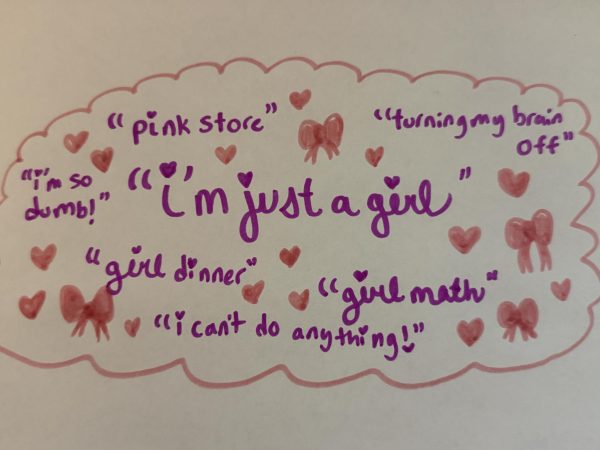 "pink store"
"turning my brain
off"
"i'm so
dumb!"
"i'm just a girl"
"girl dinner"
"girl math"
"i can't do anything!"